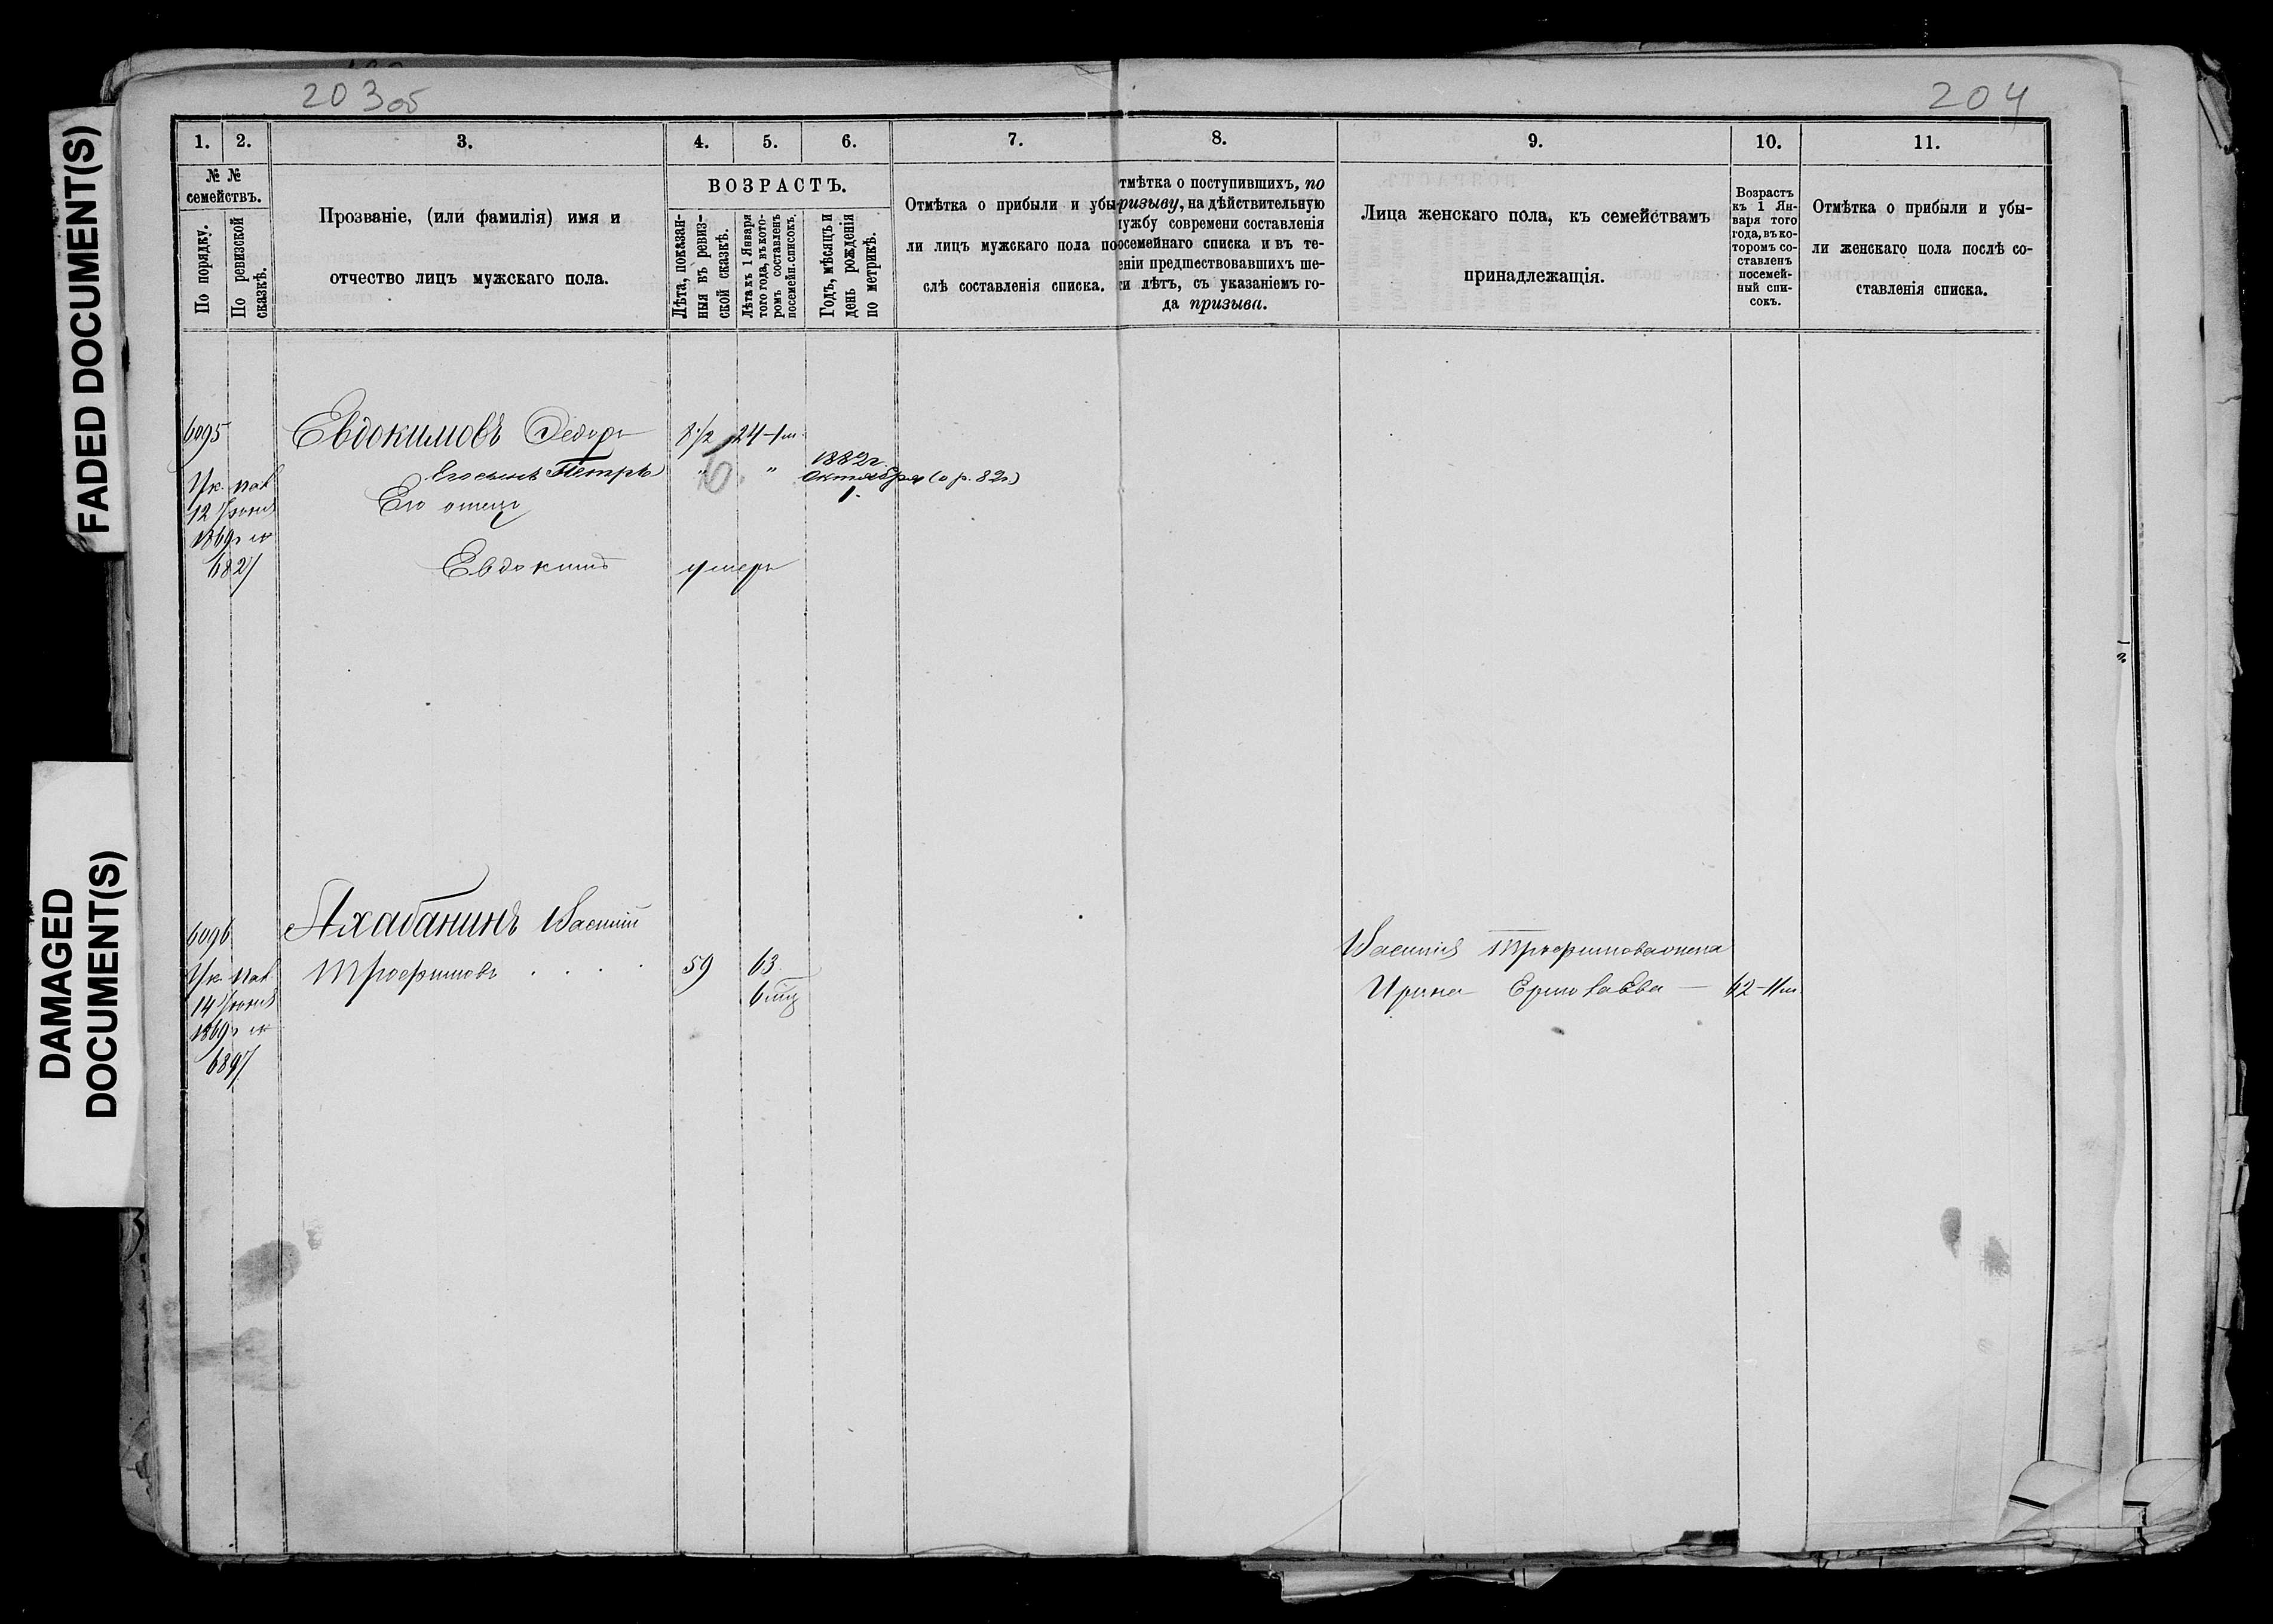 203об
204
FADED DOCUMENT(S)
DAMAGED
DOCUMENT(S)
1.
2.
3.
4.
5.
6.
7.
8.
9.
10.
11.
№ №
семействъ.
По порядку.
По ревизской
сказкѣ.
Прозваніе, (или фамилія) имя и
отчество лицъ мужскаго пола.
ВОЗРАСТЪ.
Лѣта, показан-
ныя въ ревиз-
ской сказкѣ.
Лѣта къ 1 Января
того года, въ кото-
ромъ составленъ
посемейн. списокъ.
Годъ, мѣсяцъ и
день рожденія
по метрикѣ.
Отмѣтка о прибыли и убы-
ли лицъ мужскаго пола по
слѣ составленія списка.
тмѣтка о поступившихъ, по
ризыву, на дѣйствительную
ужбу современи составленія
осемейнаго списка и въ те-
еніи предшествовавшихъ ше-
и лѣтъ, съ указаніемъ го-
да призыва.
Лица женскаго пола, къ семействамъ
принадлежащія.
Возрастъ
къ 1 Ян-
варя того
года, въ ко-
торомъ со-
ставленъ
посемей-
ный спи-
сокъ.
Отмѣтка о прибыли и убы-
ли женскаго пола послѣ со-
ставленія списка.
6095
Евдокимовъ Федоръ
8 1/2
24-1м.
Его сынъ Петръ
"
6
"
1882г.
Октября (о р. 82г)
1.
Ук. пал
12 Іюня
1869г №
6827
Его отецъ
Евдокимъ
умеръ
6096
Ахабанинъ Василій
Трофимовъ . . . .
59
63
6 мѣц
Ук. пал.
14 Іюня
1869г №
6897
Василія Трофимова жена
Ирина Ермолаева —
62-11м.